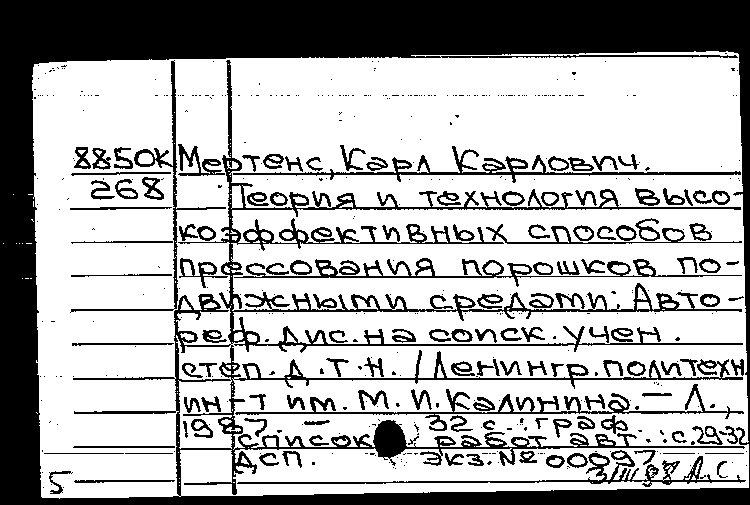 88-50К Мертенс, Карл Карлович.
268 Теория и технология высо-
коэффективных способов
прессования порошков по-
движными средами: Авто-
реф. дис. на соиск. учен.
степ. д.т.н. / Ленингр. политехн.
ин-т им. М.И. Калинина. — Л.,
1987. — 32 с.: граф
список работ авт.: с.29-32
ДСП. Экз. № 00097
5 3/III 88 Л.С.